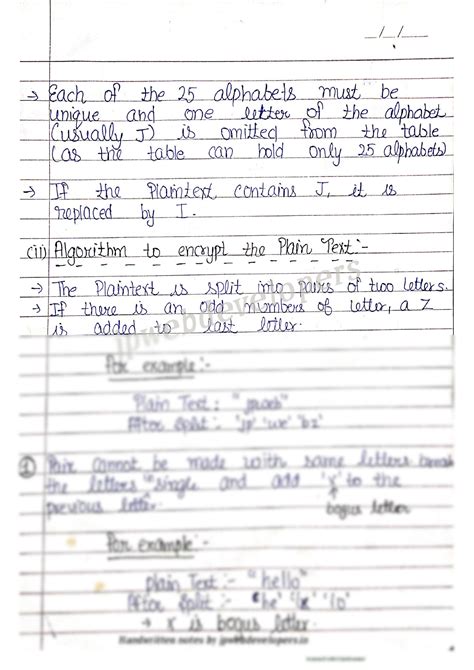 _/_/__
→ Each of the 25 alphabets must be
unique and one letter of the alphabet
(usually J) is omitted from the table
(as the table can hold only 25 alphabets)
→ If the Plaintext contains J, it is
replaced by I.
(ii) Algorithm to encrypt the Plain Text:-
→ The Plaintext is split into pairs of two letters.
→ If there is an odd numbers of letter, a Z
is added to last letter.
jpwebdevelopers
For example:-
Plain Text: "jpweb"
After Split: 'jp' 'we' 'bz'
① Pair cannot be made with same letters break
the letters single and add 'x' to the
previous letter.
bogus letter
For example:-
Plain Text:- "hello"
After Split:- 'he' 'lx' 'lo'
→ x is bogus letter.
Handwritten notes by jpwebdevelopers.in